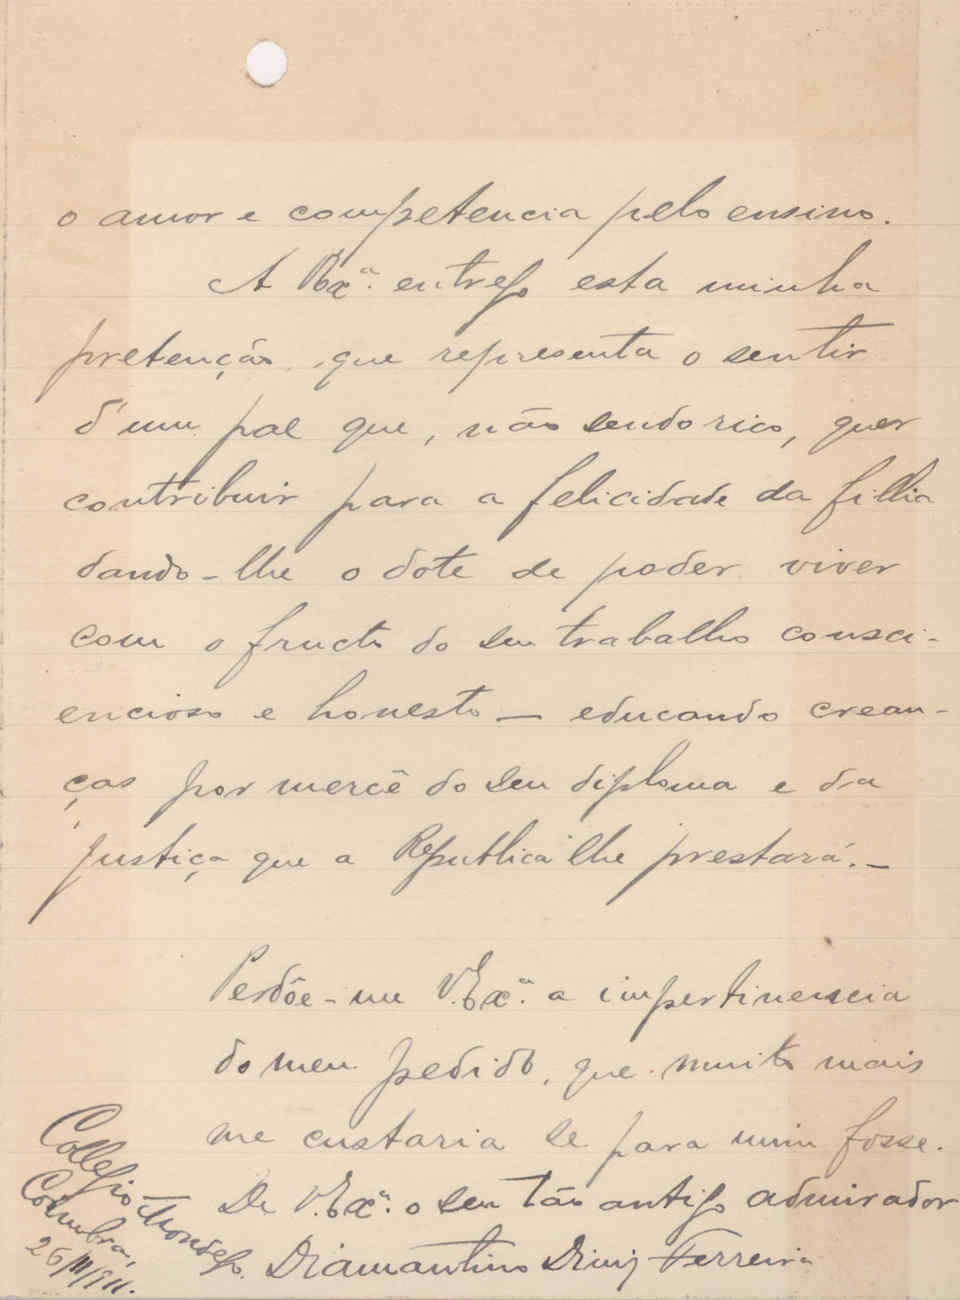 o amor e competencia pelo ensino.
A V. Exª. entrego esta minha
pretenção, que representa o sentir
d'um pae que, não sendo rico, quer
contribuir para a felicidade da filha
dando-lhe o dote de poder viver
com o fructo do seu trabalho consci-
encioso e honesto — educando crean-
ças por mercê do seu diploma e da
justiça que a Republica lhe prestará. —
Perdôe-me V. Exª. a impertinencia
do meu pedido, que muito mais
me custaria se para mim fosse.
De V. Exª. o seu tão antigo admirador
Diamantino Diniz Ferreira
Collegio Mondego.
Coimbra,
26/III/911.